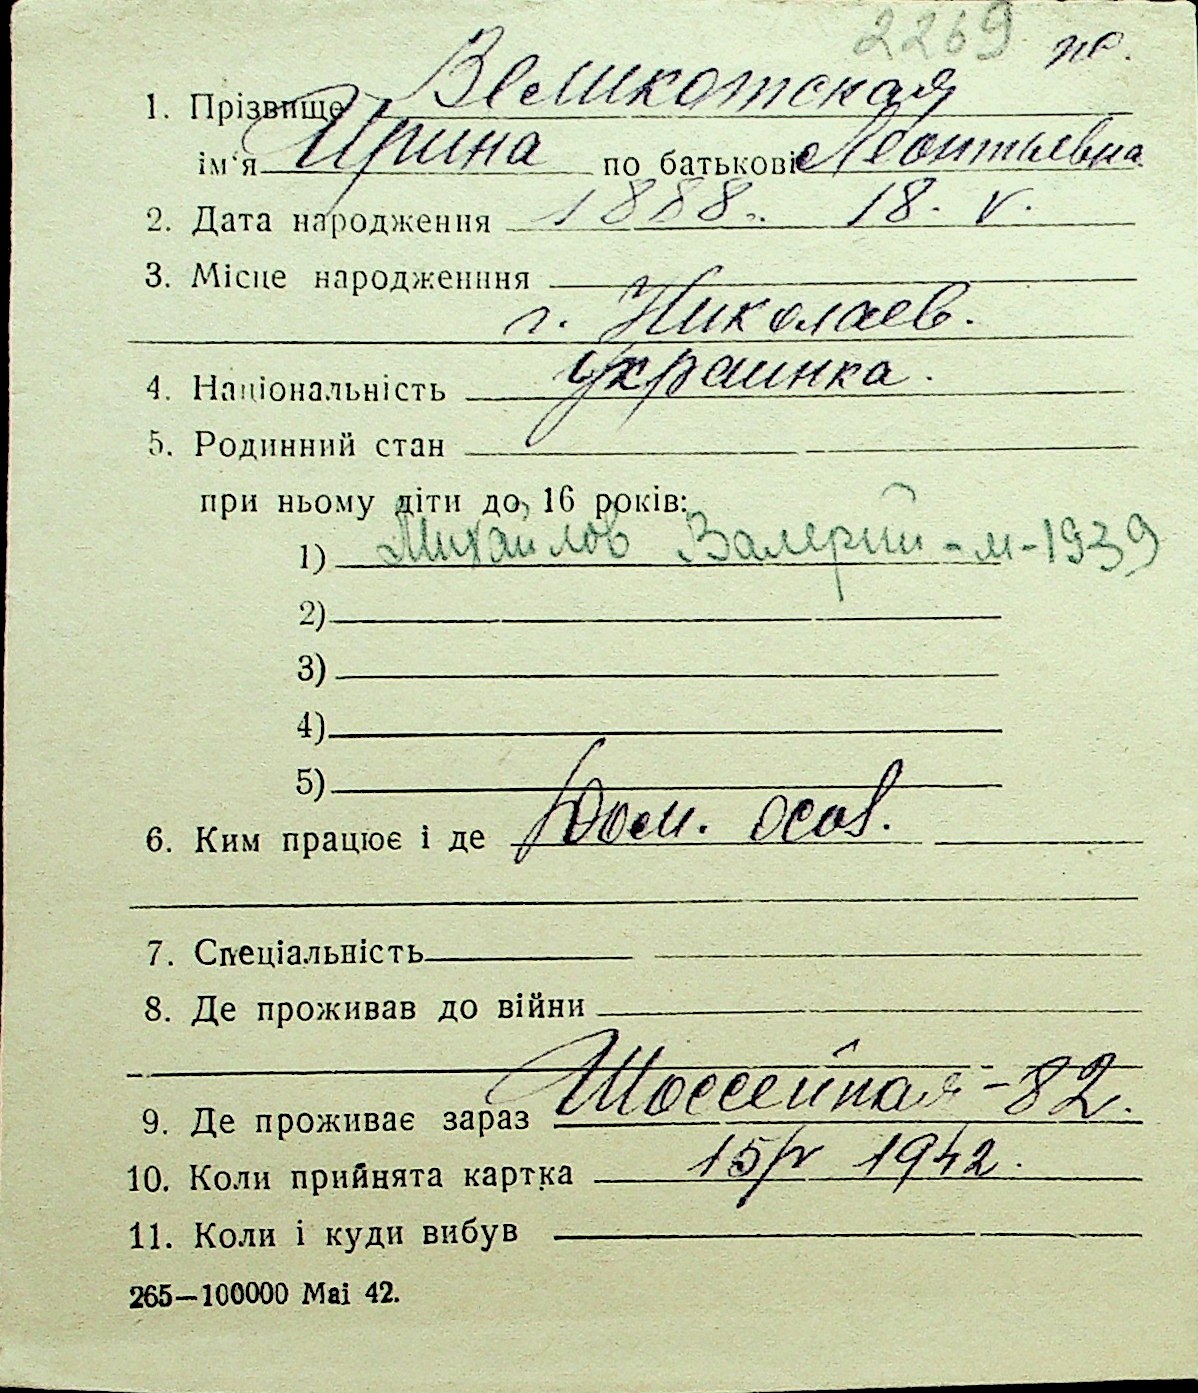 2269
1. Прізвище Великотская
ім'я Ирина по батькові Леонтьевна
2. Дата народження 1888. 18. V.
3. Місце народженння
г. Николаев.
4. Національність украинка.
5. Родинний стан
при ньому діти до 16 років:
1) Михайлов Валерий - м - 1939
2)
3)
4)
5)
6. Ким працює і де Дом.
7. Спеціальність
8. Де проживав до війни
9. Де проживає зараз Шоссейная - 82.
10. Коли прийнята картка 1942.
11. Коли і куди вибув
265—100000 Mai 42.